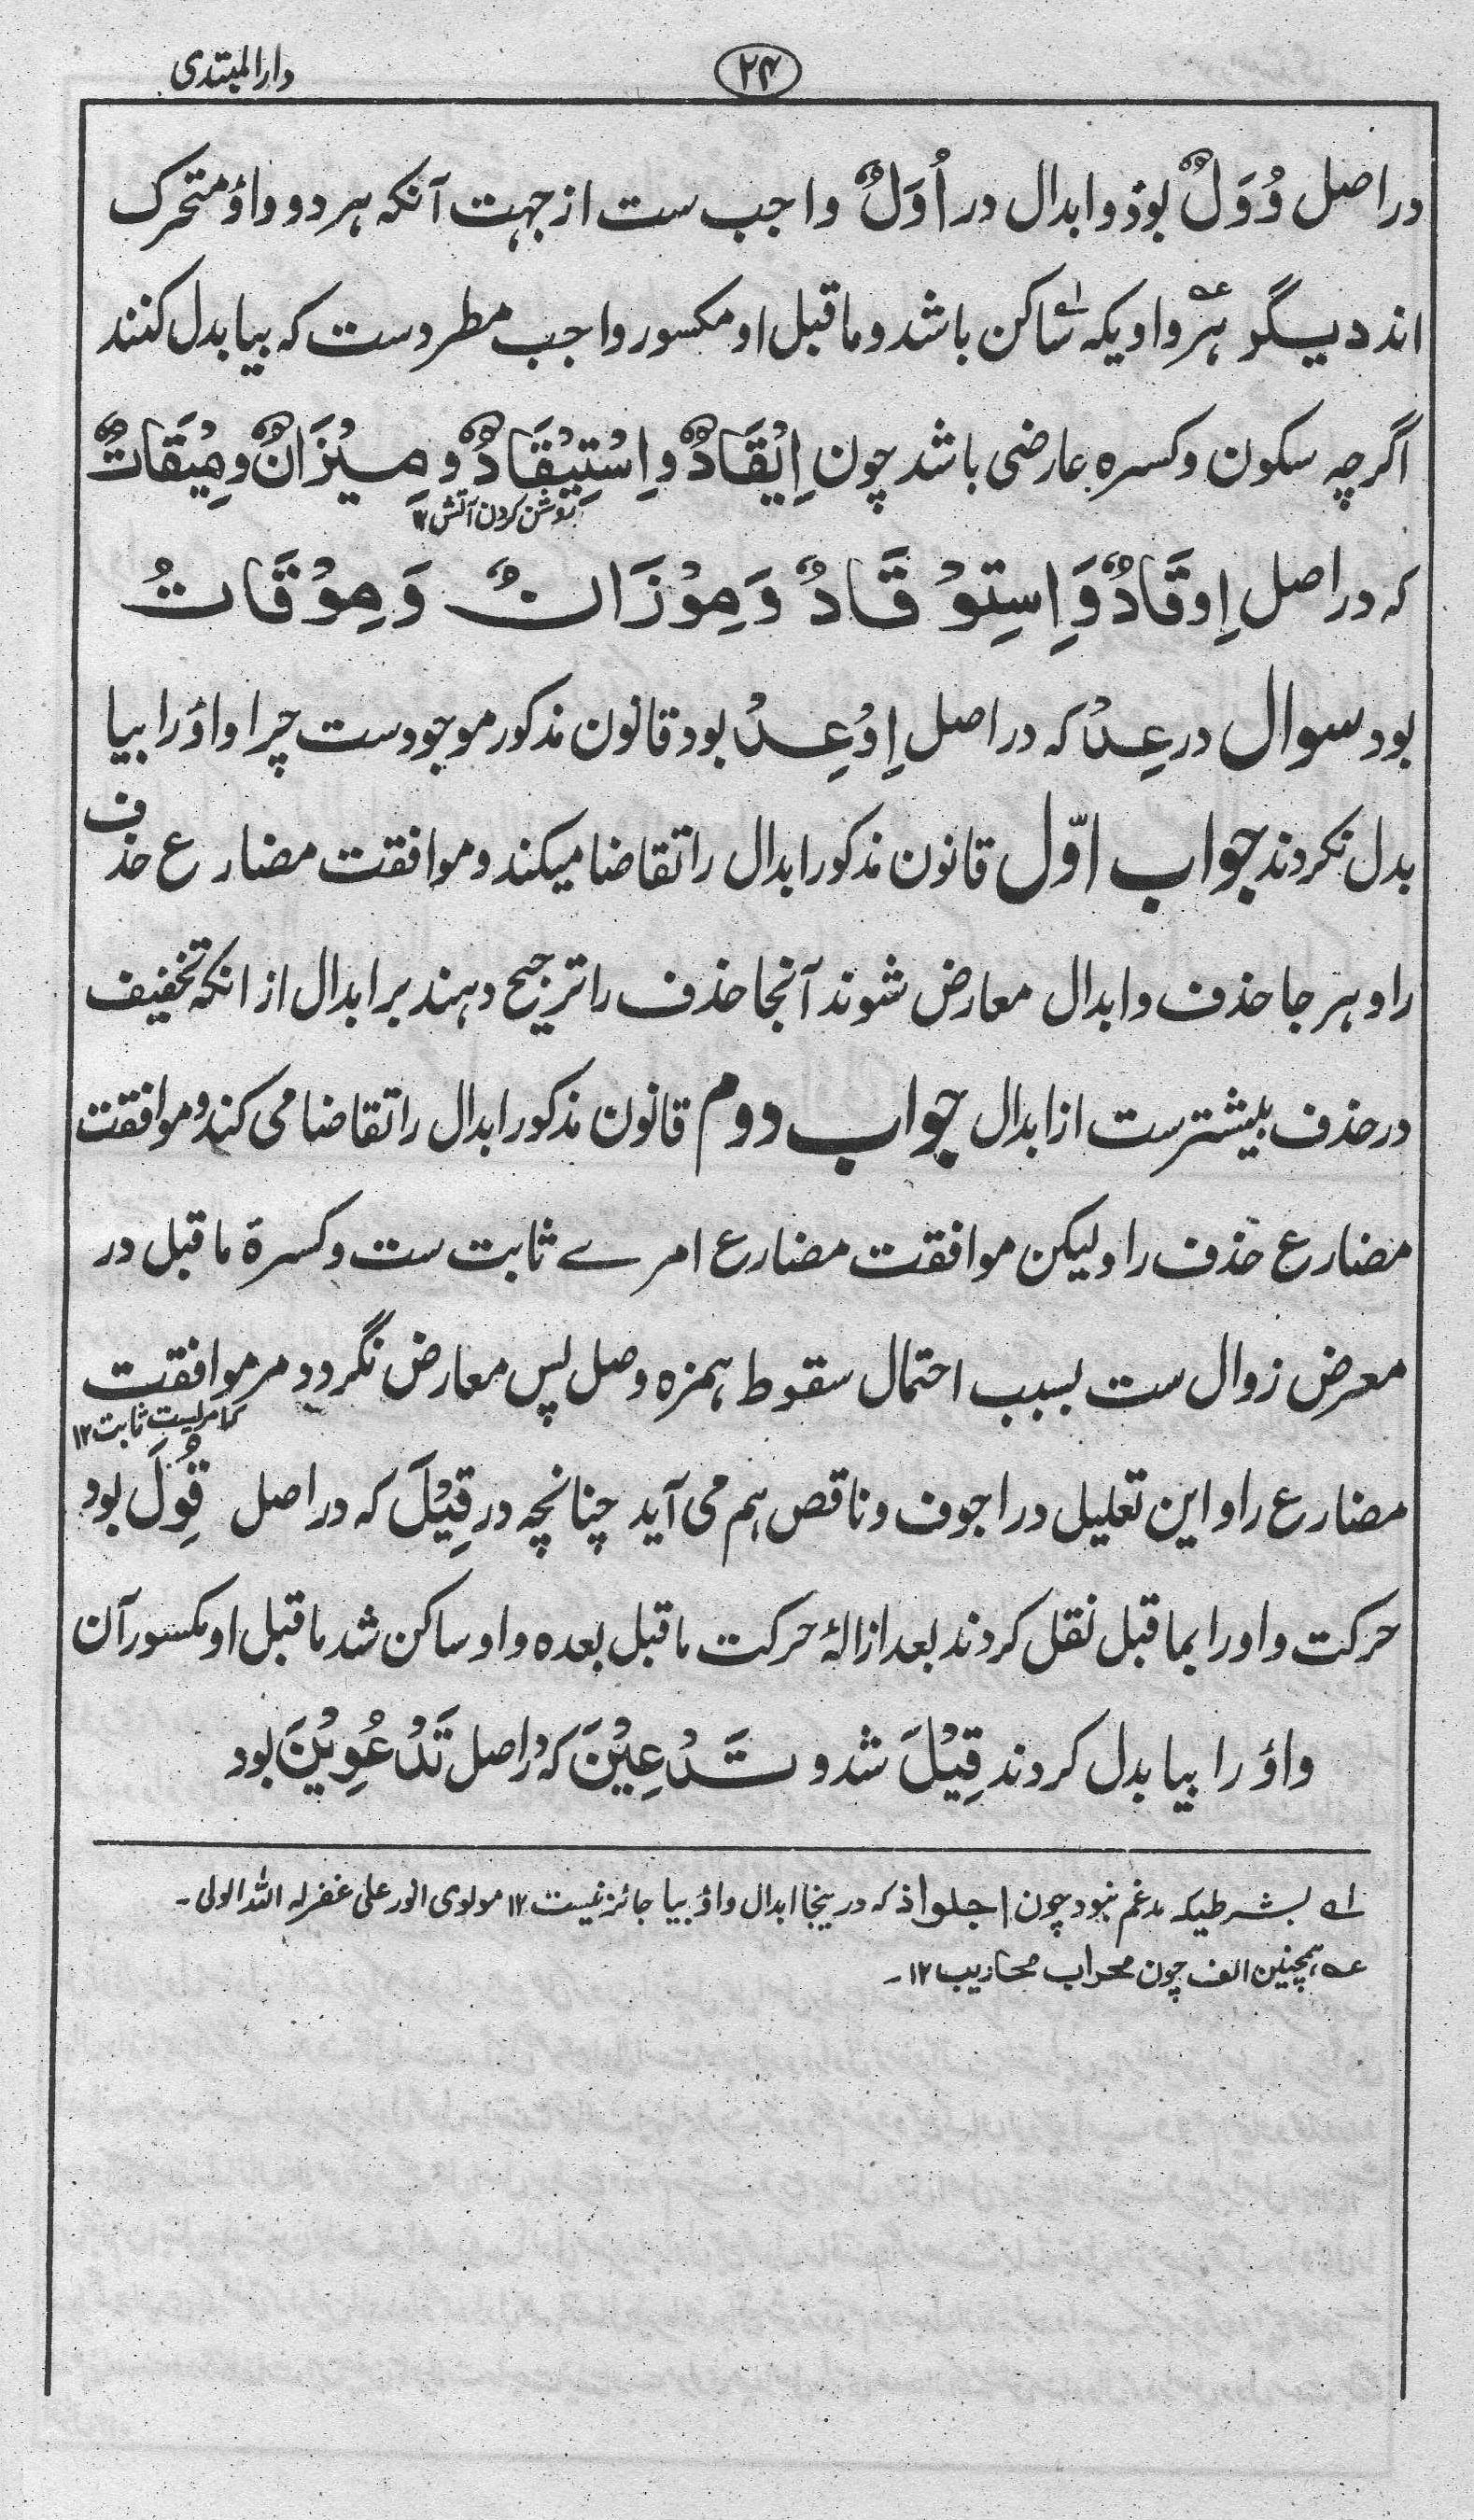 دارالمبتدی
۲۴
در اصل وُوَلٌ بود و ابدال در اُوَلٌ واجب ست از جہت آنکہ ہر دو واؤ متحرک
اند دیگر ہر واویکہ ساکن باشد و ماقبل او مکسور واجب مطرد ست کہ بیا بدل کنند
اگرچہ سکون و کسرہ عارضی باشد چون اِیْقَادٌ و اِسْتِیْقَادٌ و مِیْزَانٌ و مِیْقَاتٌ
روشن کردن آتش ۱۲
کہ در اصل اِوقَادٌ وَ اِسِتِوْقَادٌ وَ مِوْزَانٌ وَ مِوْقَاتٌ
بود سوال در عِدْ کہ در اصل اِوْعِدْ بود قانون مذکور موجود ست چرا واؤ را بیا
بدل نکردند جواب اوّل قانون مذکور ابدال را تقاضا میکند و موافقت مضارع حذف
را و ہر جا حذف و ابدال معارض شوند آنجا حذف را ترجیح دہند بر ابدال از انکہ تخفیف
در حذف بیشتر ست از ابدال جواب دوم قانون مذکور ابدال را تقاضا می کند و موافقت
مضارع حذف را ولیکن موافقت مضارع امرے ثابت ست و کسرۂ ماقبل در
معرض زوال ست بسبب احتمال سقوط ہمزہ وصل پس معارض نگردد مر موافقت
کہ امریست ثابت ۱۲
مضارع را و این تعلیل در اجوف و ناقص ہم می آید چنانچہ در قِیْلَ کہ در اصل قُوِلَ بود
حرکت واو را بماقبل نقل کردند بعد ازالۂ حرکت ماقبل بعدہ واو ساکن شد ماقبل او مکسور آن
واؤ را بیا بدل کردند قِیْلَ شد و تَدْعِیْنَ کہ در اصل تَدْعُوِیْنَ بود
لہ بشرطیکہ مدغم نبود چون اجلواذ کہ درینجا ابدال واؤ بیا جائز نیست ۱۲ مولوی انور علی غفر لہ اللہ الولی۔
عہ ہمچنین الف چون محراب محاریب ۱۲۔